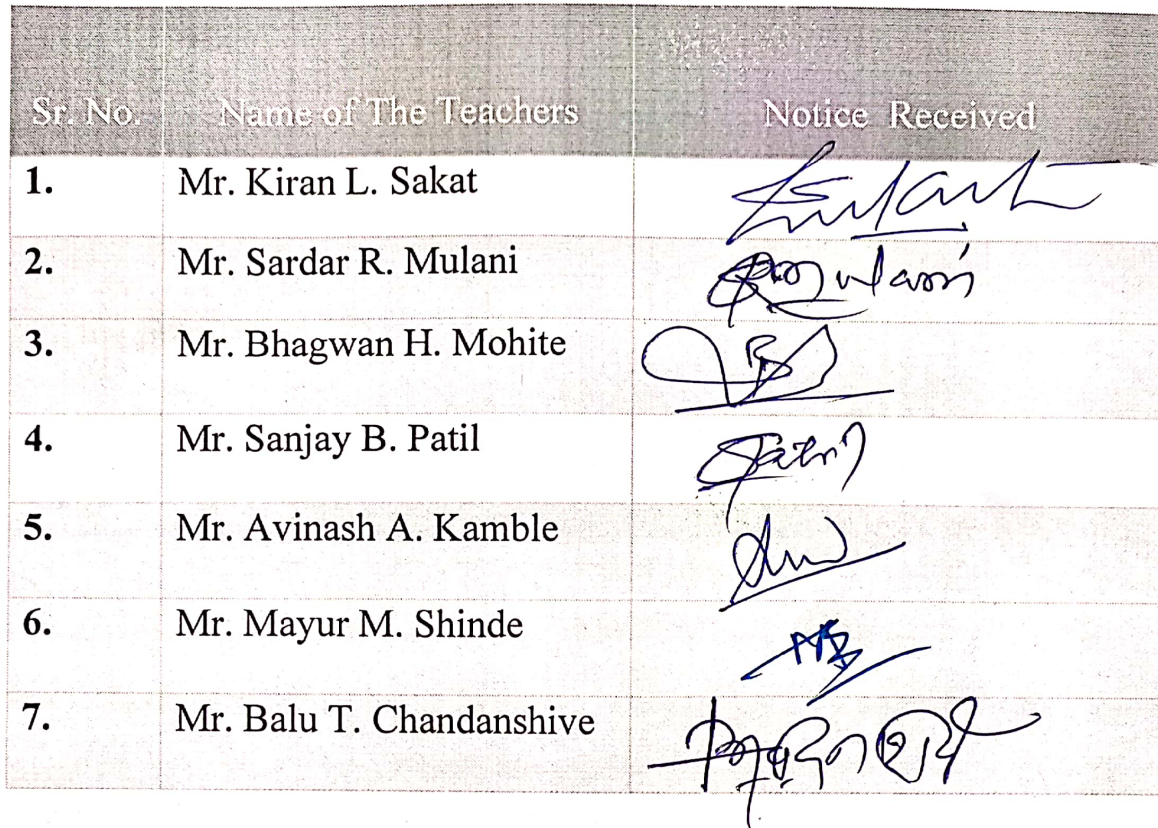 Sr. No. Name of The Teachers Notice Received
1. Mr. Kiran L. Sakat
2. Mr. Sardar R. Mulani
3. Mr. Bhagwan H. Mohite
4. Mr. Sanjay B. Patil
5. Mr. Avinash A. Kamble
6. Mr. Mayur M. Shinde
7. Mr. Balu T. Chandanshive